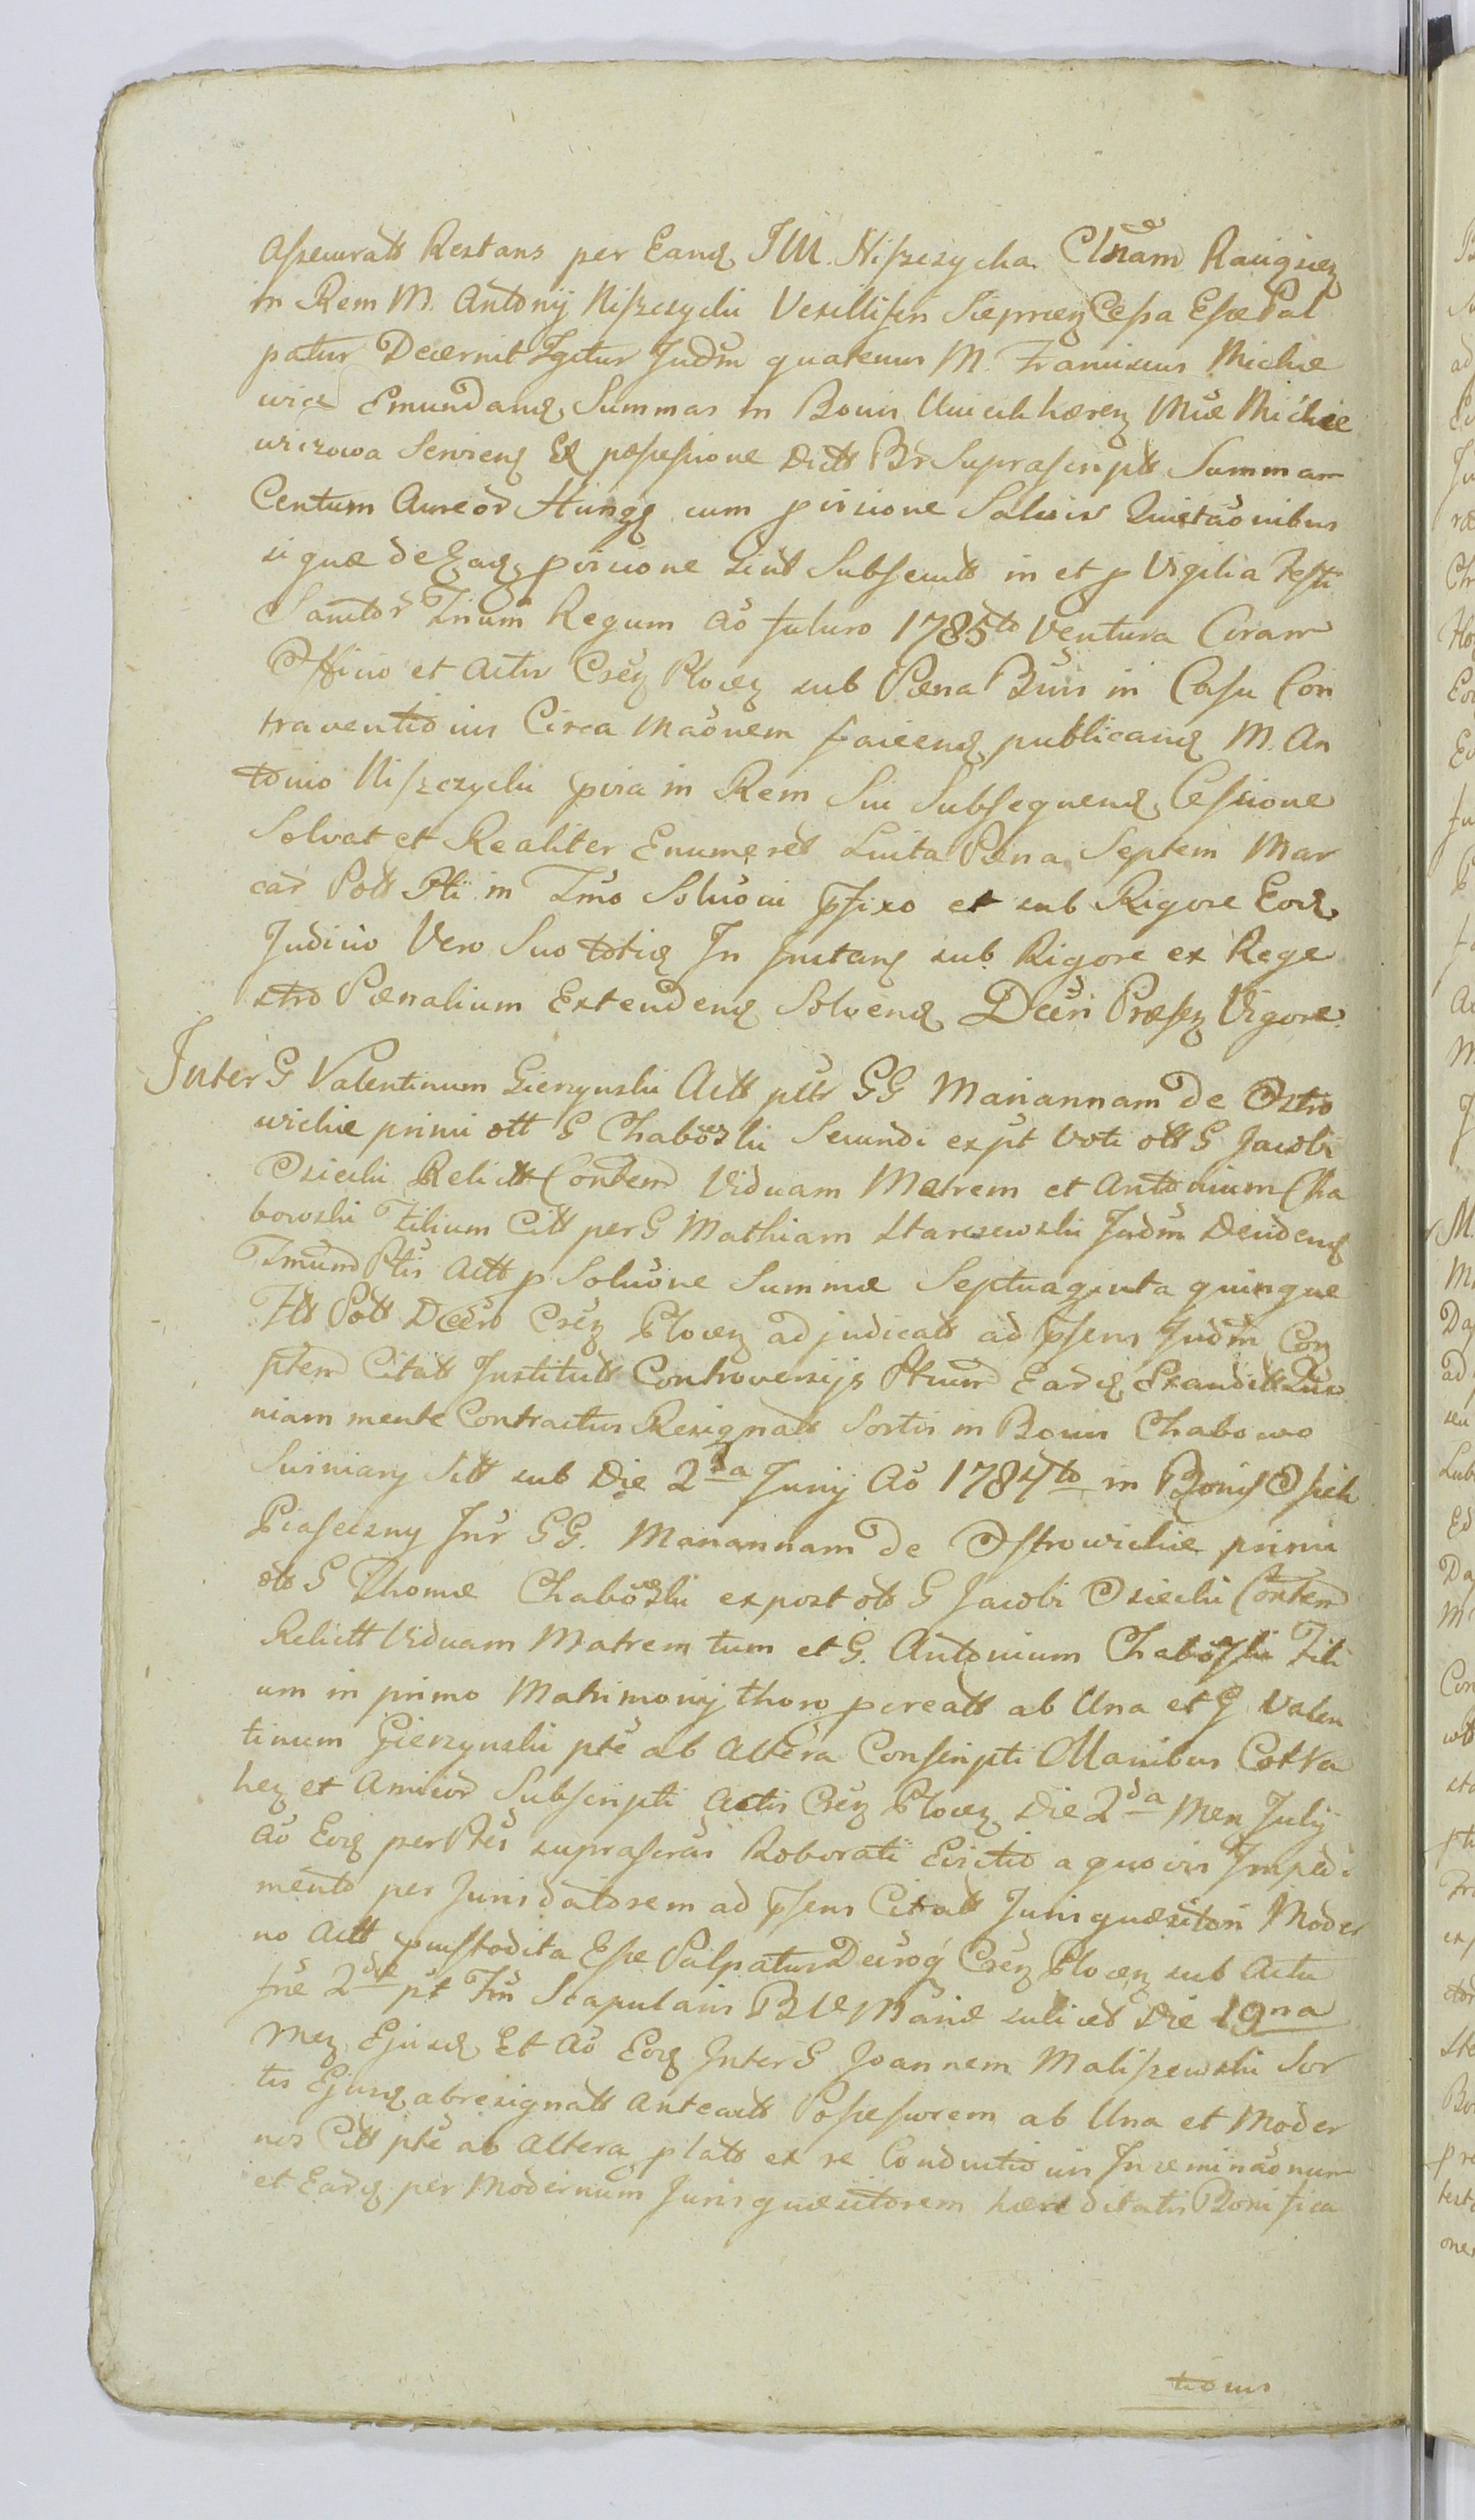 Assecuratt Restans per Eand J M. Niszczycka Clnam Raciązien
in Rem M. Antonij Niszczycki Vexilliferi Sieprcen Cessa Esse Pal
patur Decernit Igitur Judm quatenus M. Franciscus Michie
wicz Emundand Summas in Bonis Unieck hæren Mcæ Michie
wiczowa Serviend Ex possessione dictt Br Suprascriptt Summam
Centum Aureor Hungg cum provisione Salvis Quietaonibus
si quæ de Eadq provisione sint Subsecutt in et p Vigilia Festi
Sanctor Trium Regum Ao futuro 1785to Ventura Coram
Officio et Actis Csen Plocen sub Pæna Bnis in Casu Con
traventionis Circa Maonem faciend publicand M. An
tonio Niszczycki pvia in Rem Sui Subsequend Cessione
Solvat et Realiter Enumeret Luita Pæna Septem Mar
car Pott Pti in Tmo Soluoni pfixo et sub Rigore Eod
Judicio Vero Suo toties In Instans sub Rigore ex Rege
stro Pænalium Extendend Solvend Decri Præsen Vigore
Inter G Valentinum Gierzynski Actt pttr GG Mariannam de Ostro
wickie primi ott G Chaboski Secundi expt Voti ott G Jacobi
Osiecki Relictt Contem Viduam Matrem et Antonium Cha
bowski Filium Citt per G Mathiam Starczewski Judm Decidend
Tmum Ptis Actt p Soluone Summæ Septuaginta quinque
Ftt Pott Decro Csen Plocen adjudicatt ad Psens Judm Com
ptem Citatt Institutt Controversijs Ptium Eardq Exauditt Quo
niam mente Contractus Resignatt Sortis in Bonis Chabowo
Swiniary Sitt sub Die 2da Junij Ao 1784to in Bonis Osiek
Piaseczny Inr GG. Mariannam de Ostrowickie primi
ott G Thomæ Chaboski expost ott G Jacobi Osiecki Contem
Relictt Viduam Matrem tum et G. Antonium Chaboski Fili
um in primo Matrimonij thoro pcreatt ab Una et G Valen
tinum Gierzynski pte ab Altera Conscripti Manibus Cotra
hen et Amicor Subscripti Actis Csen Plocen Die 2da Men July
Ao Eodq per Ptes suprascras Roborati Evictio a quovis Impedi
mento per Juris datorem ad Psens Citatt Juris quæsitori Moder
no Actt pcustodita Esse Palpatur Decroq Csen Plocen sub Actu
fræ 2dæ pt Fm Scapularis B V Mariæ scilicet Die 19na
Men Ejusd Et Ao Eodq Inter G Joannem Maliszewski Sor
tis Ejusq abresignatt Anteactt Possessorem ab Una et Moder
nos Citt pte ab Altera platt ex re Conductionis Inseminaonum
et Eardq per Modernum Juris quæsitorem hæreditatis Bonifica
tionis